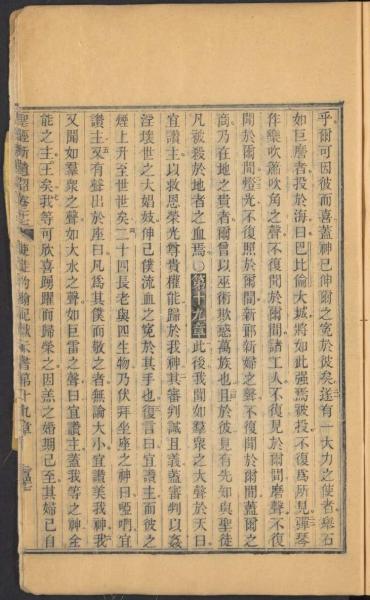 乎爾可因彼而喜蓋神已伸爾之寃於彼矣遂有一大力之使者舉石
如巨磨者投於海曰巴比倫大城將如此強焉被投不復爲所見彈琴
作樂吹簫吹角之聲不復聞於爾間諸工人不復見於爾間磨聲不復
聞於爾間燈光不復照於爾間新郎新婦之聲不復聞於爾間蓋爾之
商乃在地之貴者爾曾以巫術欺惑萬族也且於彼見有先知與聖徒
凡被殺於地者之血焉○第十九章此後我聞如羣眾之大聲於天曰
宜讚主以救恩榮光尊貴權能歸於我神其審判誠且義蓋審判以姦
淫壞世之大娼妓伸己僕流血之寃於其手也復言曰宜讚主而彼之
煙上升至世世矣二十四長老與四生物乃伏拜坐座之神曰啞們宜
讚主又有聲出於座曰凡爲其僕而敬之者無論大小宜讚美我神我
又聞如羣眾之聲如大水之聲如巨雷之聲曰宜讚主蓋我等之神全
能之主王矣我等可欣喜踴躍而歸榮之因羔之婚期已至其婦已自